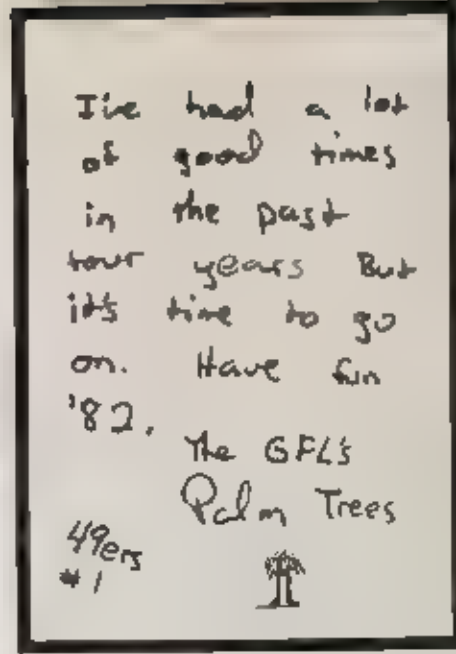 I've had a lot
of good times
in the past
four years But
it's time to go
on. Have fun
'82.
The GFL's
Palm Trees
49ers
#1